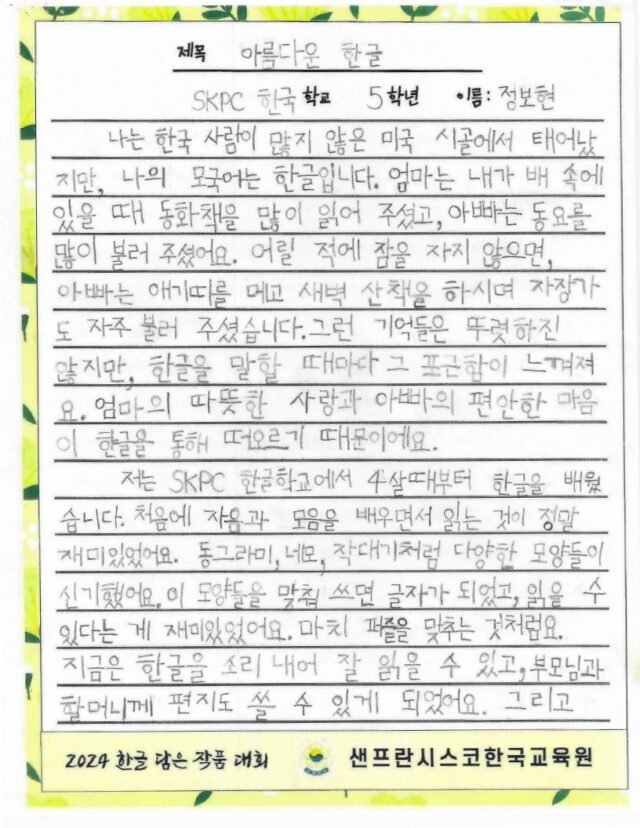 제목 아름다운 한글
SKPC 한국 학교 5 학년 이름: 정보현
나는 한국 사람이 많지 않은 미국 시골에서 태어났
지만, 나의 모국어는 한글입니다. 엄마는 내가 배 속에
있을 때 동화책을 많이 읽어 주셨고, 아빠는 동요를
많이 불러 주셨어요. 어릴 적에 잠을 자지 않으면,
아빠는 애기띠를 메고 새벽 산책을 하시며 자장가
도 자주 불러 주셨습니다. 그런 기억들은 뚜렷하진
않지만, 한글을 말할 때마다 그 포근함이 느껴져
요. 엄마의 따뜻한 사랑과 아빠의 편안한 마음
이 한글을 통해 떠오르기 때문이에요.
저는 SKPC 한글학교에서 4살때부터 한글을 배웠
습니다. 처음에 자음과 모음을 배우면서 읽는 것이 정말
재미있었어요. 동그라미, 네모, 작대기처럼 다양한 모양들이
신기했어요. 이 모양들을 맞춰 쓰면 글자가 되었고, 읽을 수
있다는 게 재미있었어요. 마치 퍼즐을 맞추는 것처럼요.
지금은 한글을 소리 내어 잘 읽을 수 있고, 부모님과
할머니께 편지도 쓸 수 있게 되었어요. 그리고
2024 한글 담은 작품 대회 샌프란시스코한국교육원